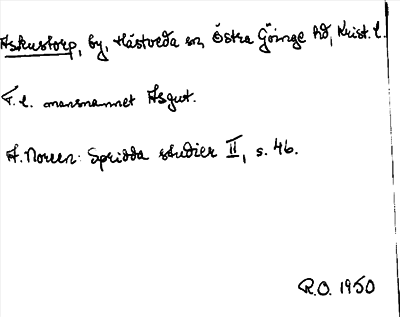 Askustorp, by, Hästveda sn, Östra Göinge hd, Krist. l.
F. l. mansnamnet Asgut.
A. Noreen: Spridda studier II, s. 46.
R.O. 1950